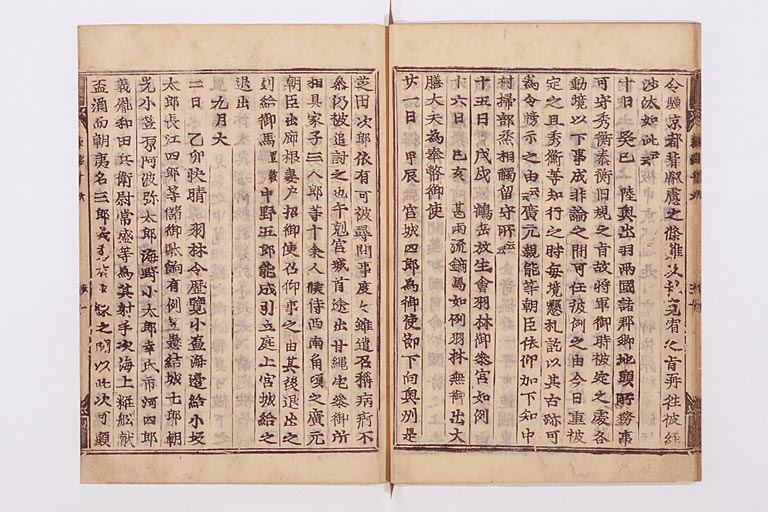 沙汰如此云云
十日 癸巳 陸奥出羽両國諸郡郷地頭所務事
可守秀衡泰衡旧規之旨故将軍御時被定之處各
動境以下事成非論之間可任彼例之由今日重被
定之且秀衡等知行之時毎境懸札訖以其古跡可
為令牓示之由云云廣元親能等朝臣依仰加下知中
村掃部丞相觸留守所云云
十五日 戊戌 鶴岳放生會羽林御參宮如例
十六日 己亥 甚雨流鏑馬如例羽林無御出大
膳大夫為奉幣御使
廿一日 甲辰 宮城四郎為御使節下向奥州是
芝田次郎依有可被尋問事度々雖遣召称病痾不
參仍被追討之也午剋宮城首途出甘縄宅參御所
相具家子三人郎等十余人候侍西南角爰廣元
朝臣出廊根妻戸招御使召仰事之由其後退出之
刻給御馬置鞍中野五郎能成引立庭上宮城給之
退出
九月大
二日 乙卯快晴 羽林令歴覽小壺海邉給小坂
太郎長江四郎等儲御駄餉有例笠懸結城七郎朝
光小笠原阿波弥太郎海野小太郎幸氏市河四郎
義胤和田兵衛尉常盛等為其射手次海上粧舩献
盃酒而朝夷名三郎義秀 之間以此次可顕